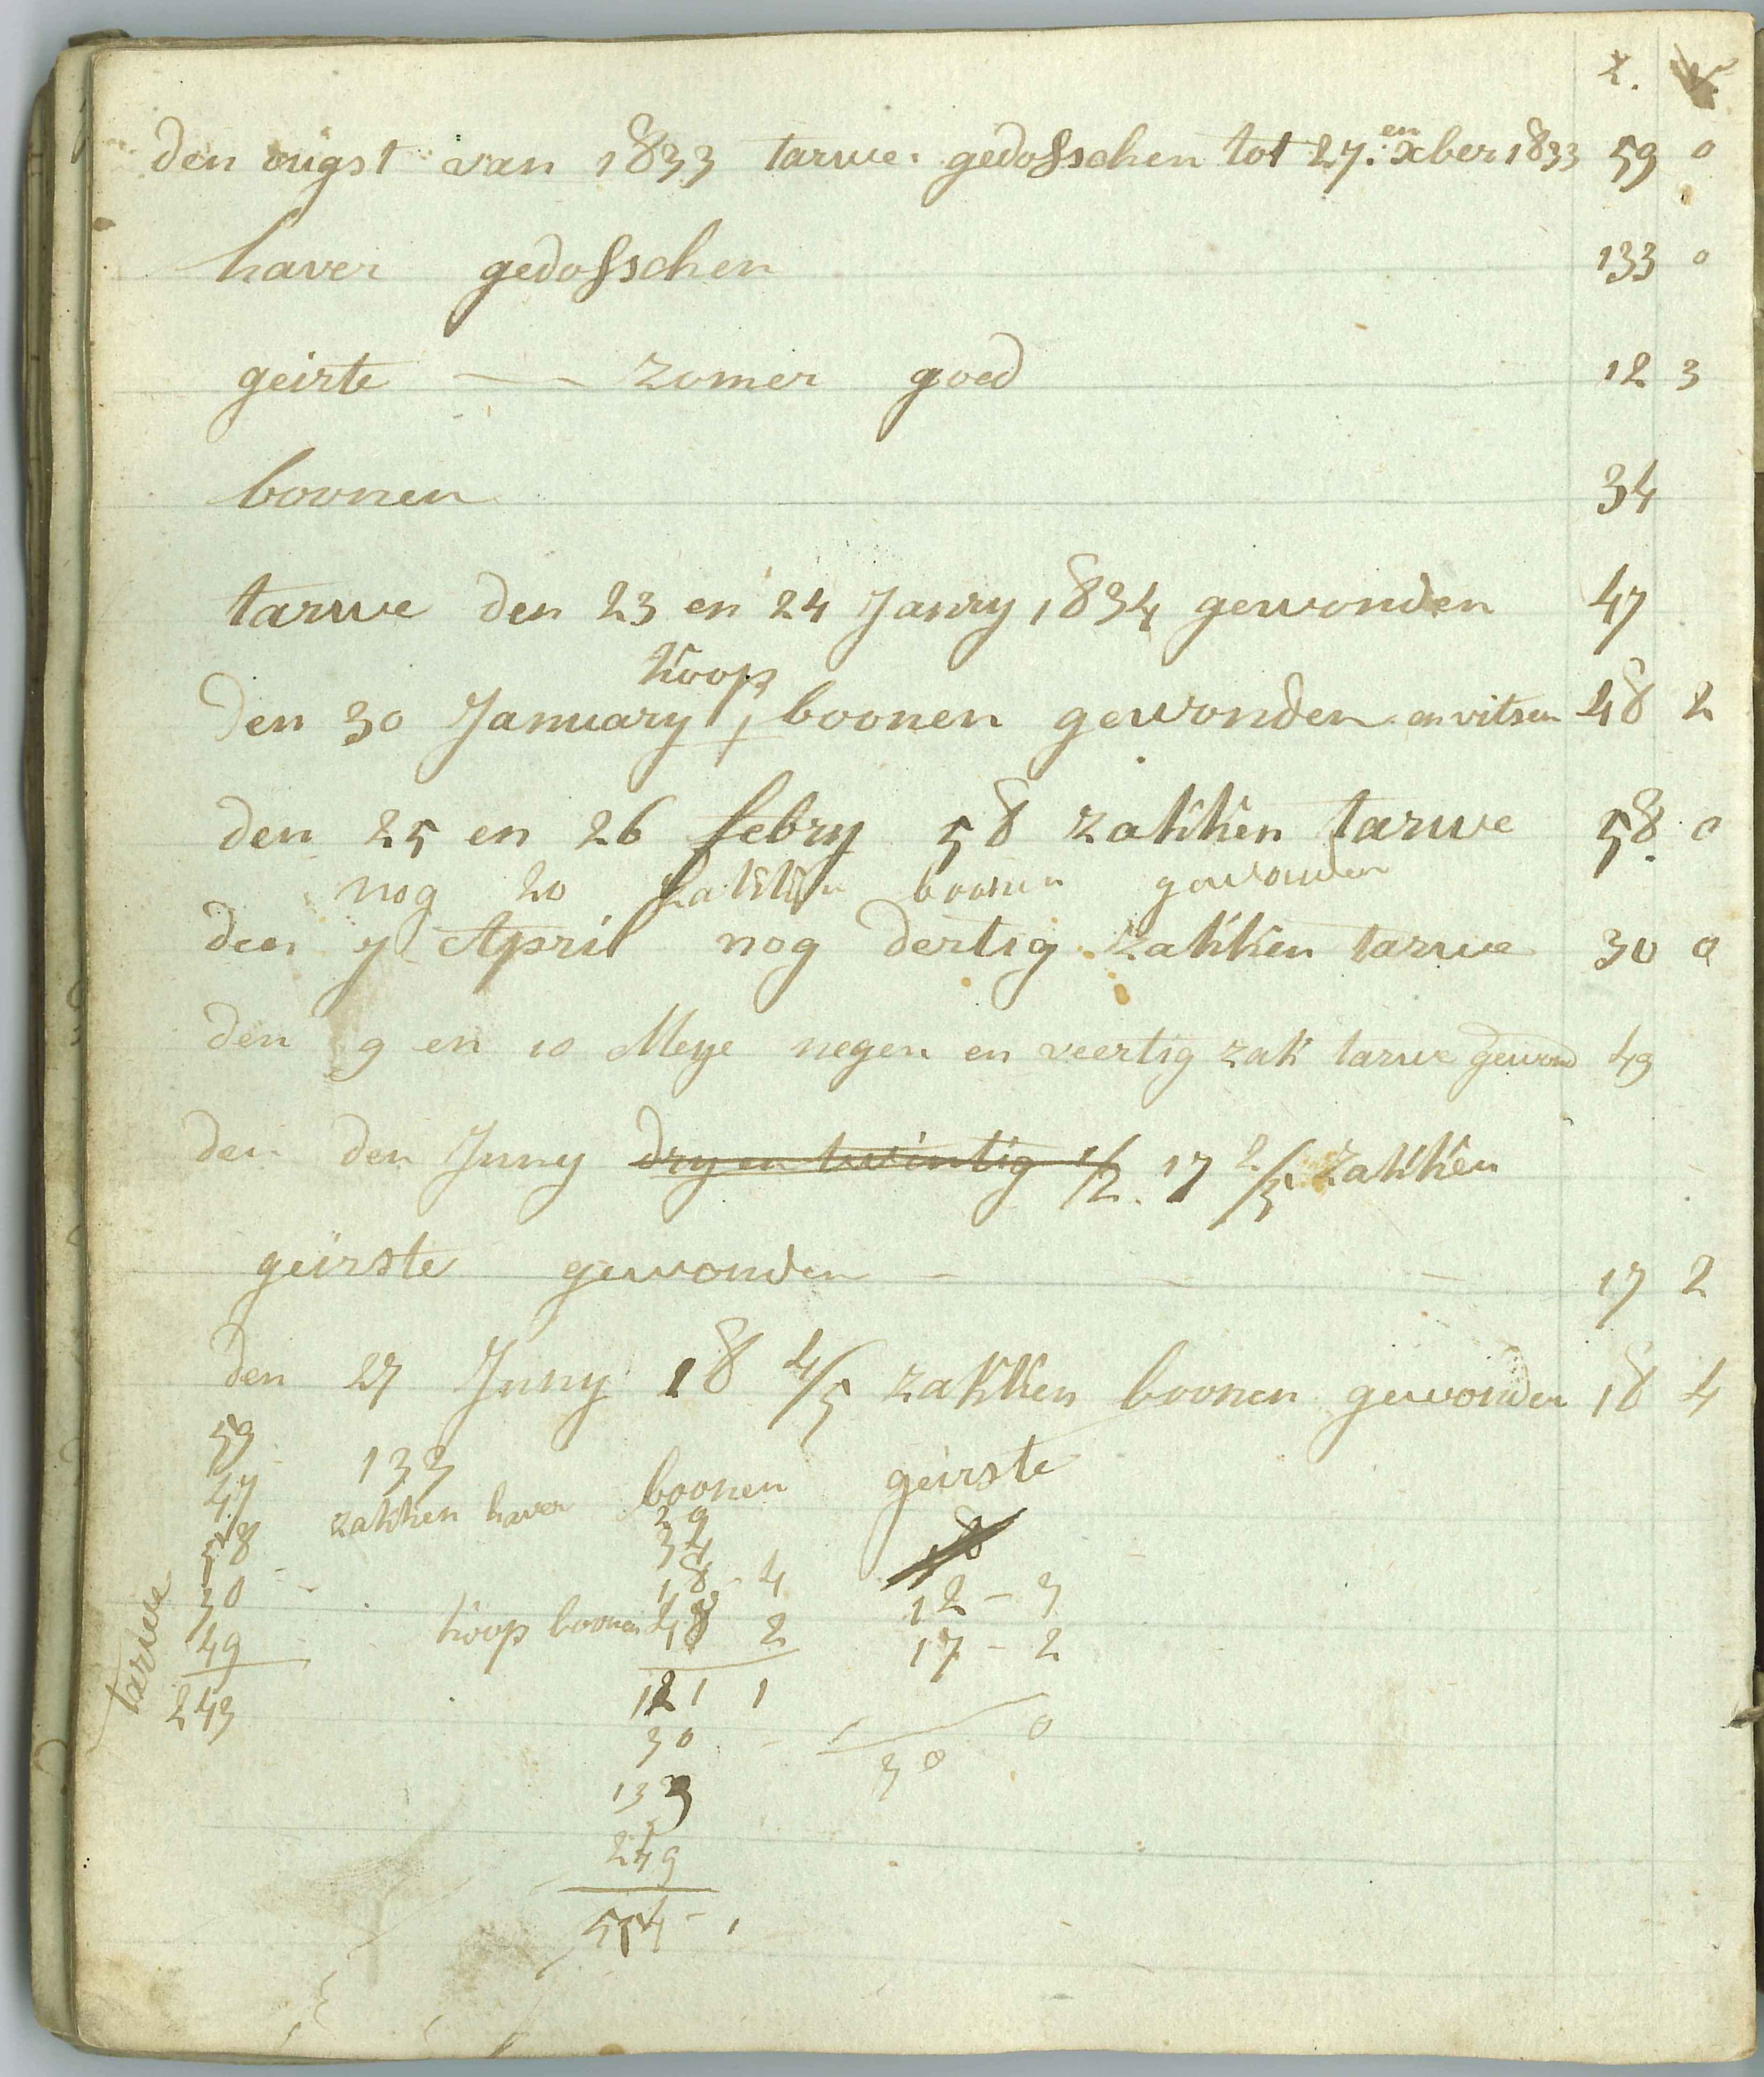 z. v.
den ougst van 1833 tarwe gedosschen tot 27.en xber 1833 59 0
haver gedosschen 133 0
geirte — — zomer goed 12 3
boonen 34
tarwe den 23 en 24 Janry 1834 gewonden 47
koop
den 30 January boonen gewonden en vitsen 48 2
den 25 en 26 febry 58 zakken tarwe 58 0
nog 20 zakken boonen gewonden
den 7 April nog dertig zakken tarwe 30 0
den 9 en 10 Meye negen en veertig zak tarwe gewond 49
den den Juny dry en twintig 1/2. 17 2/5 zakken
geirste gewonden — — — 17 2
den 27 Juny 18 4/5 zakken boonen gewonden 18 4
59 133 boonen geirste
47 zakken haver 20
58 34 18
30 18 - 4 12 - 3
49 koop boonen 48 2 17 - 2
tarwe 243 121 1 30 0
30
133
249
554 - 1